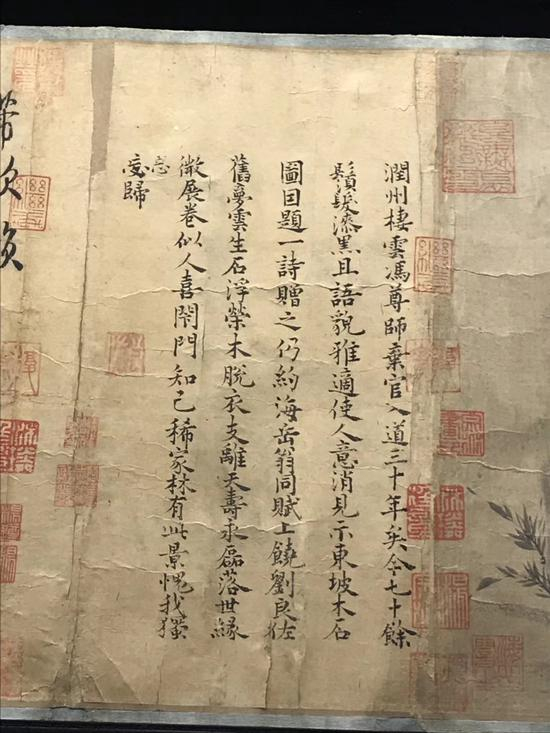 潤州棲雲馮尊師棄官入道三十年矣今七十餘
鬚髮漆黑且語貌雅適使人意消見示東坡木石
圖因題一詩贈之仍約海岳翁同賦上饒劉良佐
舊夢雲生石浮榮木脫衣支離天壽永磊落世緣
微展卷似人喜閉門知己稀家林有此景愧我獨
忘歸